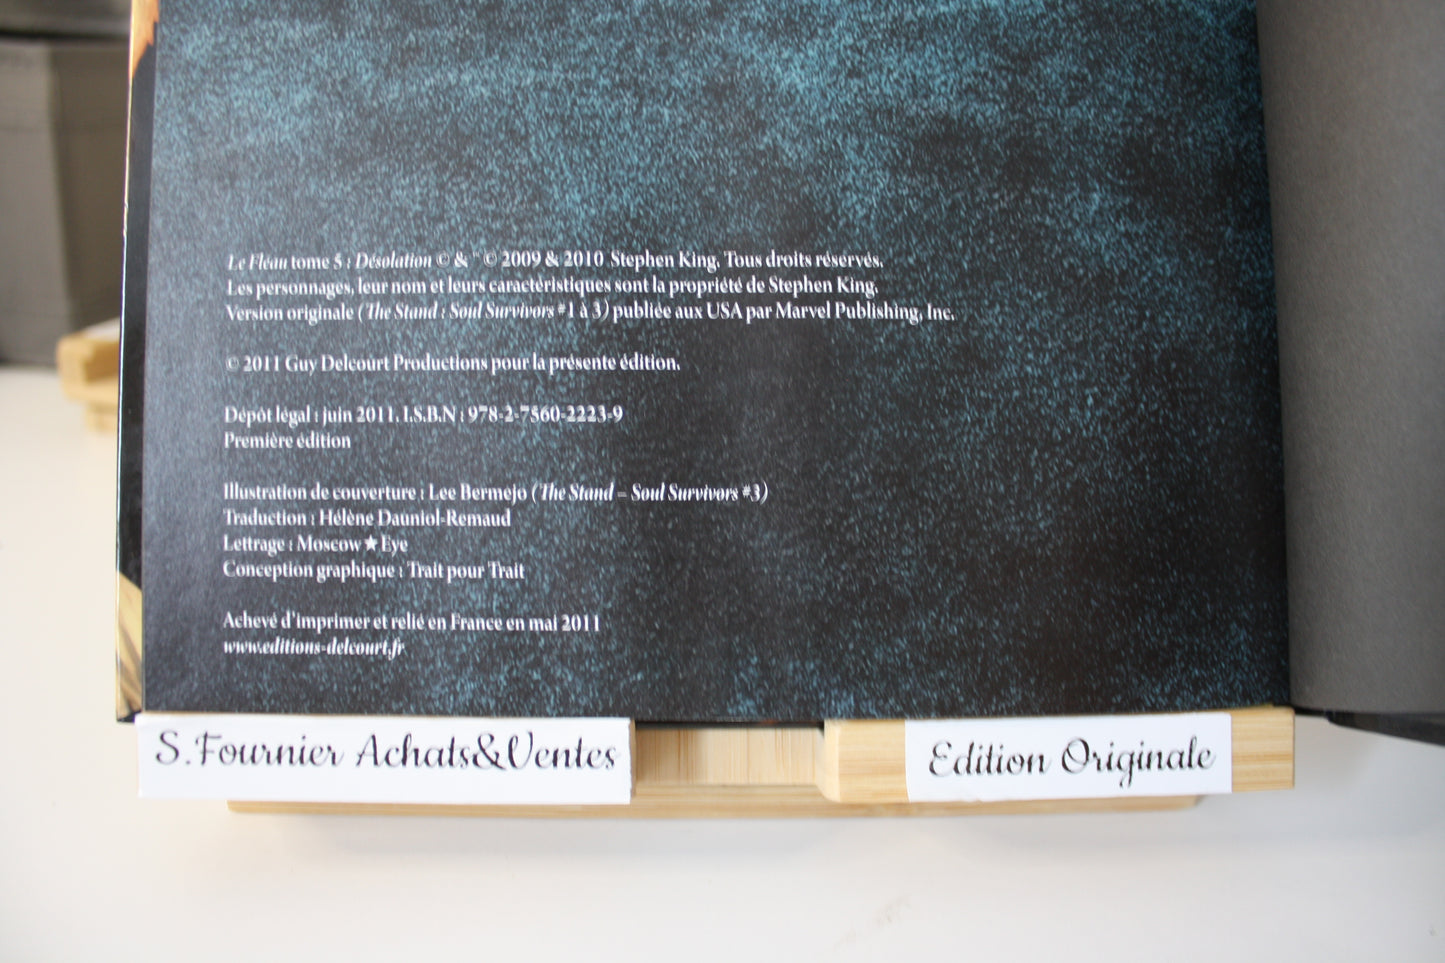 Le Fléau tome 5 : Désolation © & ™ © 2009 & 2010 Stephen King. Tous droits réservés.
Les personnages, leur nom et leurs caractéristiques sont la propriété de Stephen King.
Version originale (The Stand : Soul Survivors #1 à 3) publiée aux USA par Marvel Publishing, Inc.
© 2011 Guy Delcourt Productions pour la présente édition.
Dépôt légal : juin 2011. I.S.B.N : 978-2-7560-2223-9
Première édition
Illustration de couverture : Lee Bermejo (The Stand – Soul Survivors #3)
Traduction : Hélène Dauniol-Remaud
Lettrage : Moscow★Eye
Conception graphique : Trait pour Trait
Achevé d'imprimer et relié en France en mai 2011
www.editions-delcourt.fr
S.Fournier Achats&Ventes
Edition Originale